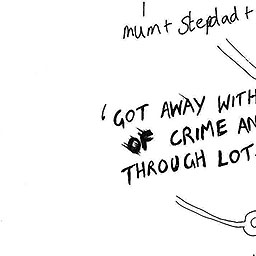 mum + Stepdad +
' GOT AWAY WITH
OF CRIME AN
THROUGH LOT.